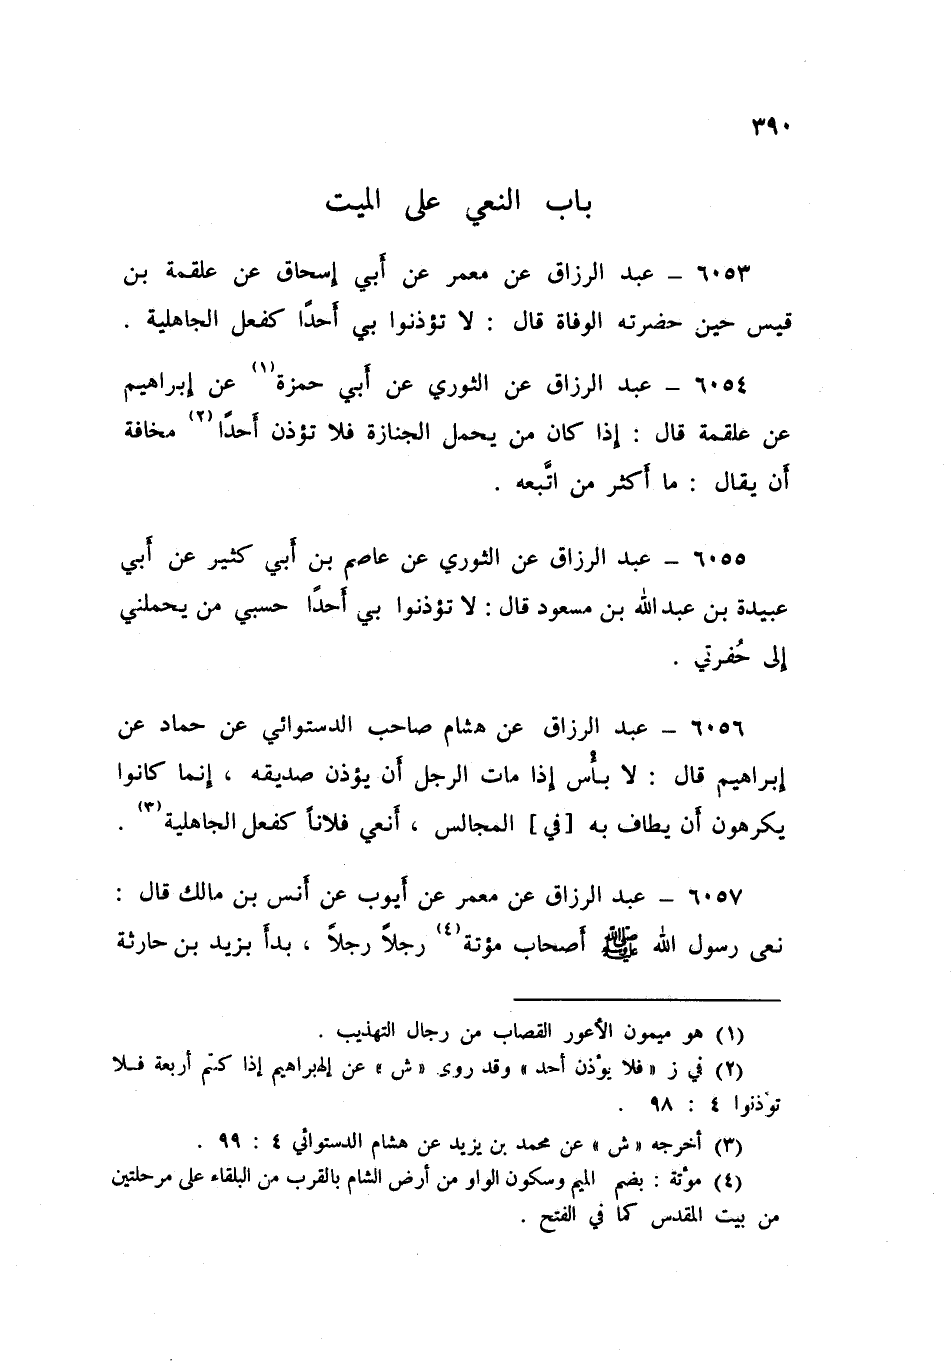 ٣٩٠
باب النعي على الميت
٦٠٥٣ ـ عبد الرزاق عن معمر عن أَبي إسحاق عن علقمة بن
قيس حين حضرته الوفاة قال : لا تؤذنوا بي أَحدًا كفعل الجاهلية .
٦٠٥٤ ـ عبد الرزاق عن الثوري عن أَبي حمزة(١) عن إبراهيم
عن علقمة قال : إذا كان من يحمل الجنازة فلا تؤذن أَحدًا(٢) مخافة
أَن يقال : ما أَكثر من اتَّبعه .
٦٠٥٥ ـ عبد الرزاق عن الثوري عن عاصم بن أَبي كثير عن أَبي
عبيدة بن عبد الله بن مسعود قال : لا تؤذنوا بي أَحدًا حسبي من يحملني
إلى حُفرتي .
٦٠٥٦ ـ عبد الرزاق عن هشام صاحب الدستوائي عن حماد عن
إبراهيم قال : لا بأْس إذا مات الرجل أَن يؤذن صديقه ، إنما كانوا
يكرهون أَن يطاف به [في] المجالس ، أَنعي فلاناً كفعل الجاهلية(٣) .
٦٠٥٧ ـ عبد الرزاق عن معمر عن أَيوب عن أَنس بن مالك قال :
نعى رسول الله ﷺ أَصحاب مؤتة(٤) رجلاً رجلاً ، بدأَ بزيد بن حارثة
(١) هو ميمون الأعور القصاب من رجال التهذيب .
(٢) في ز « فلا يؤذن أحد » وقد روى « ش » عن إبراهيم إذا كنتم أربعة فلا
تؤذنوا ٤ : ٩٨ .
(٣) أخرجه « ش » عن محمد بن يزيد عن هشام الدستوائي ٤ : ٩٩ .
(٤) مؤتة : بضم الميم وسكون الواو من أرض الشام بالقرب من البلقاء على مرحلتين
من بيت المقدس كما في الفتح .